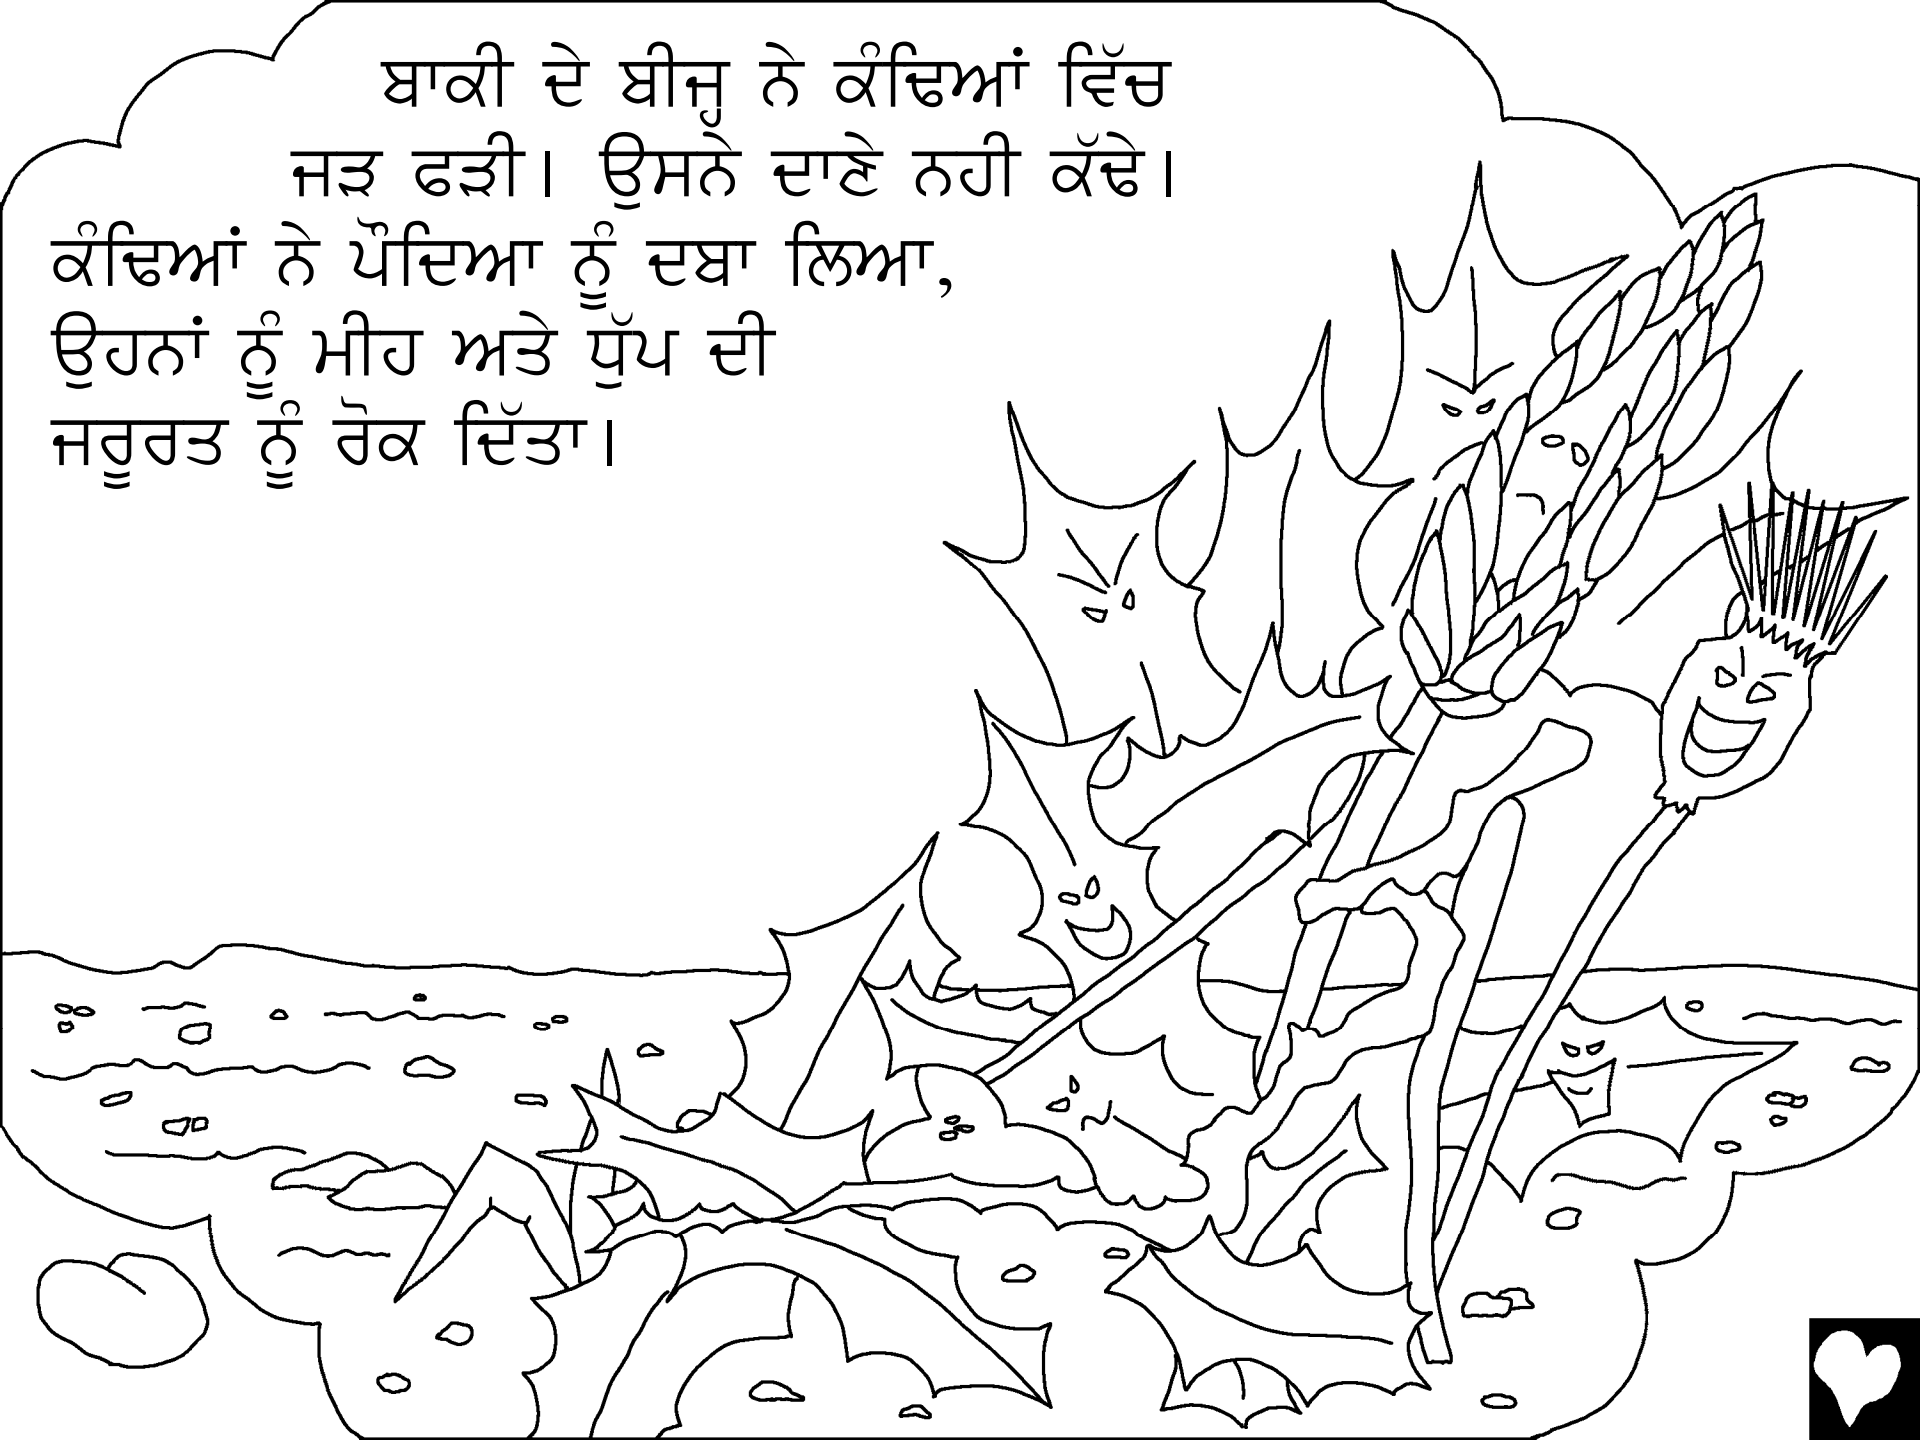 ਬਾਕੀ ਦੇ ਬੀਜ੍ਹ ਨੇ ਕੰਢਿਆਂ ਵਿੱਚ
ਜੜ ਫੜੀ। ਉਸਨੇ ਦਾਣੇ ਨਹੀ ਕੱਢੇ।
ਕੰਢਿਆਂ ਨੇ ਪੌਦਿਆ ਨੂੰ ਦਬਾ ਲਿਆ,
ਉਹਨਾਂ ਨੂੰ ਮੀਹ ਅਤੇ ਧੁੱਪ ਦੀ
ਜਰੂਰਤ ਨੂੰ ਰੋਕ ਦਿੱਤਾ।